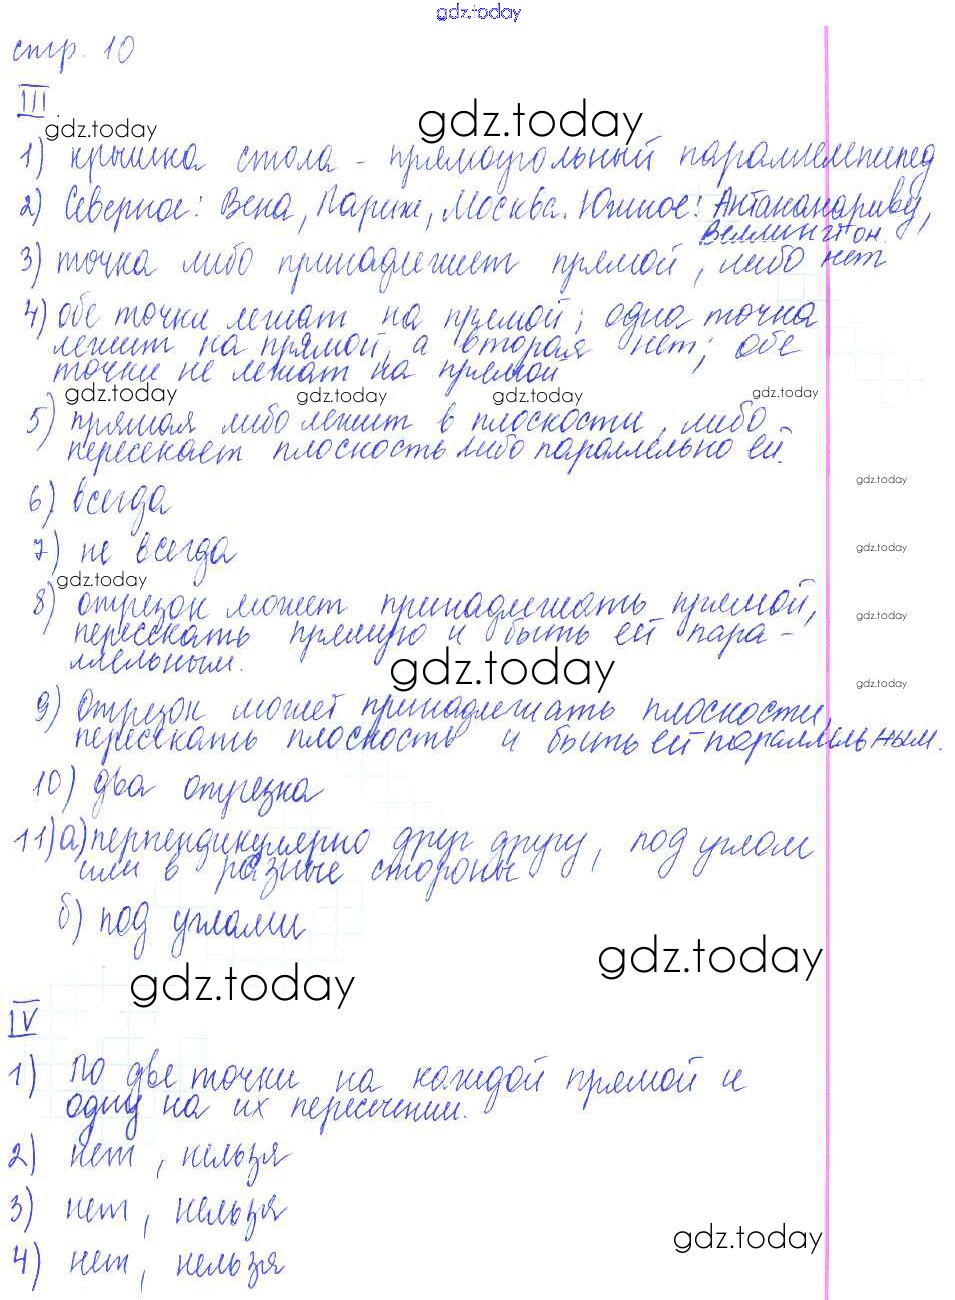 gdz.today
стр. 10
III.
gdz.today
gdz.today
1) крышка стола - прямоугольный параллелепипед
2) Северное: Вена, Париж, Москва. Южное: Антананариву,
Веллингтон.
3) точка либо принадлежит прямой, либо нет
4) обе точки лежат на прямой; одна точка
лежит на прямой, а вторая нет; обе
точки не лежат на прямой
gdz.today gdz.today gdz.today gdz.today
5) прямая либо лежит в плоскости, либо
пересекает плоскость либо параллельно ей.
gdz.today
6) всегда
7) не всегда
gdz.today
gdz.today
8) отрезок может принадлежать прямой,
gdz.today
пересекать прямую и быть ей пара-
ллельным.
gdz.today
gdz.today
9) Отрезок может принадлежать плоскости,
пересекать плоскость и быть ей параллельным.
10) два отрезка
11) а) перпендикулярно друг другу, под углом
или в разные стороны
б) под углами
gdz.today
gdz.today
IV
1) По две точки на каждой прямой и
одну на их пересечении.
2) нет, нельзя
3) нет, нельзя
gdz.today
4) нет, нельзя